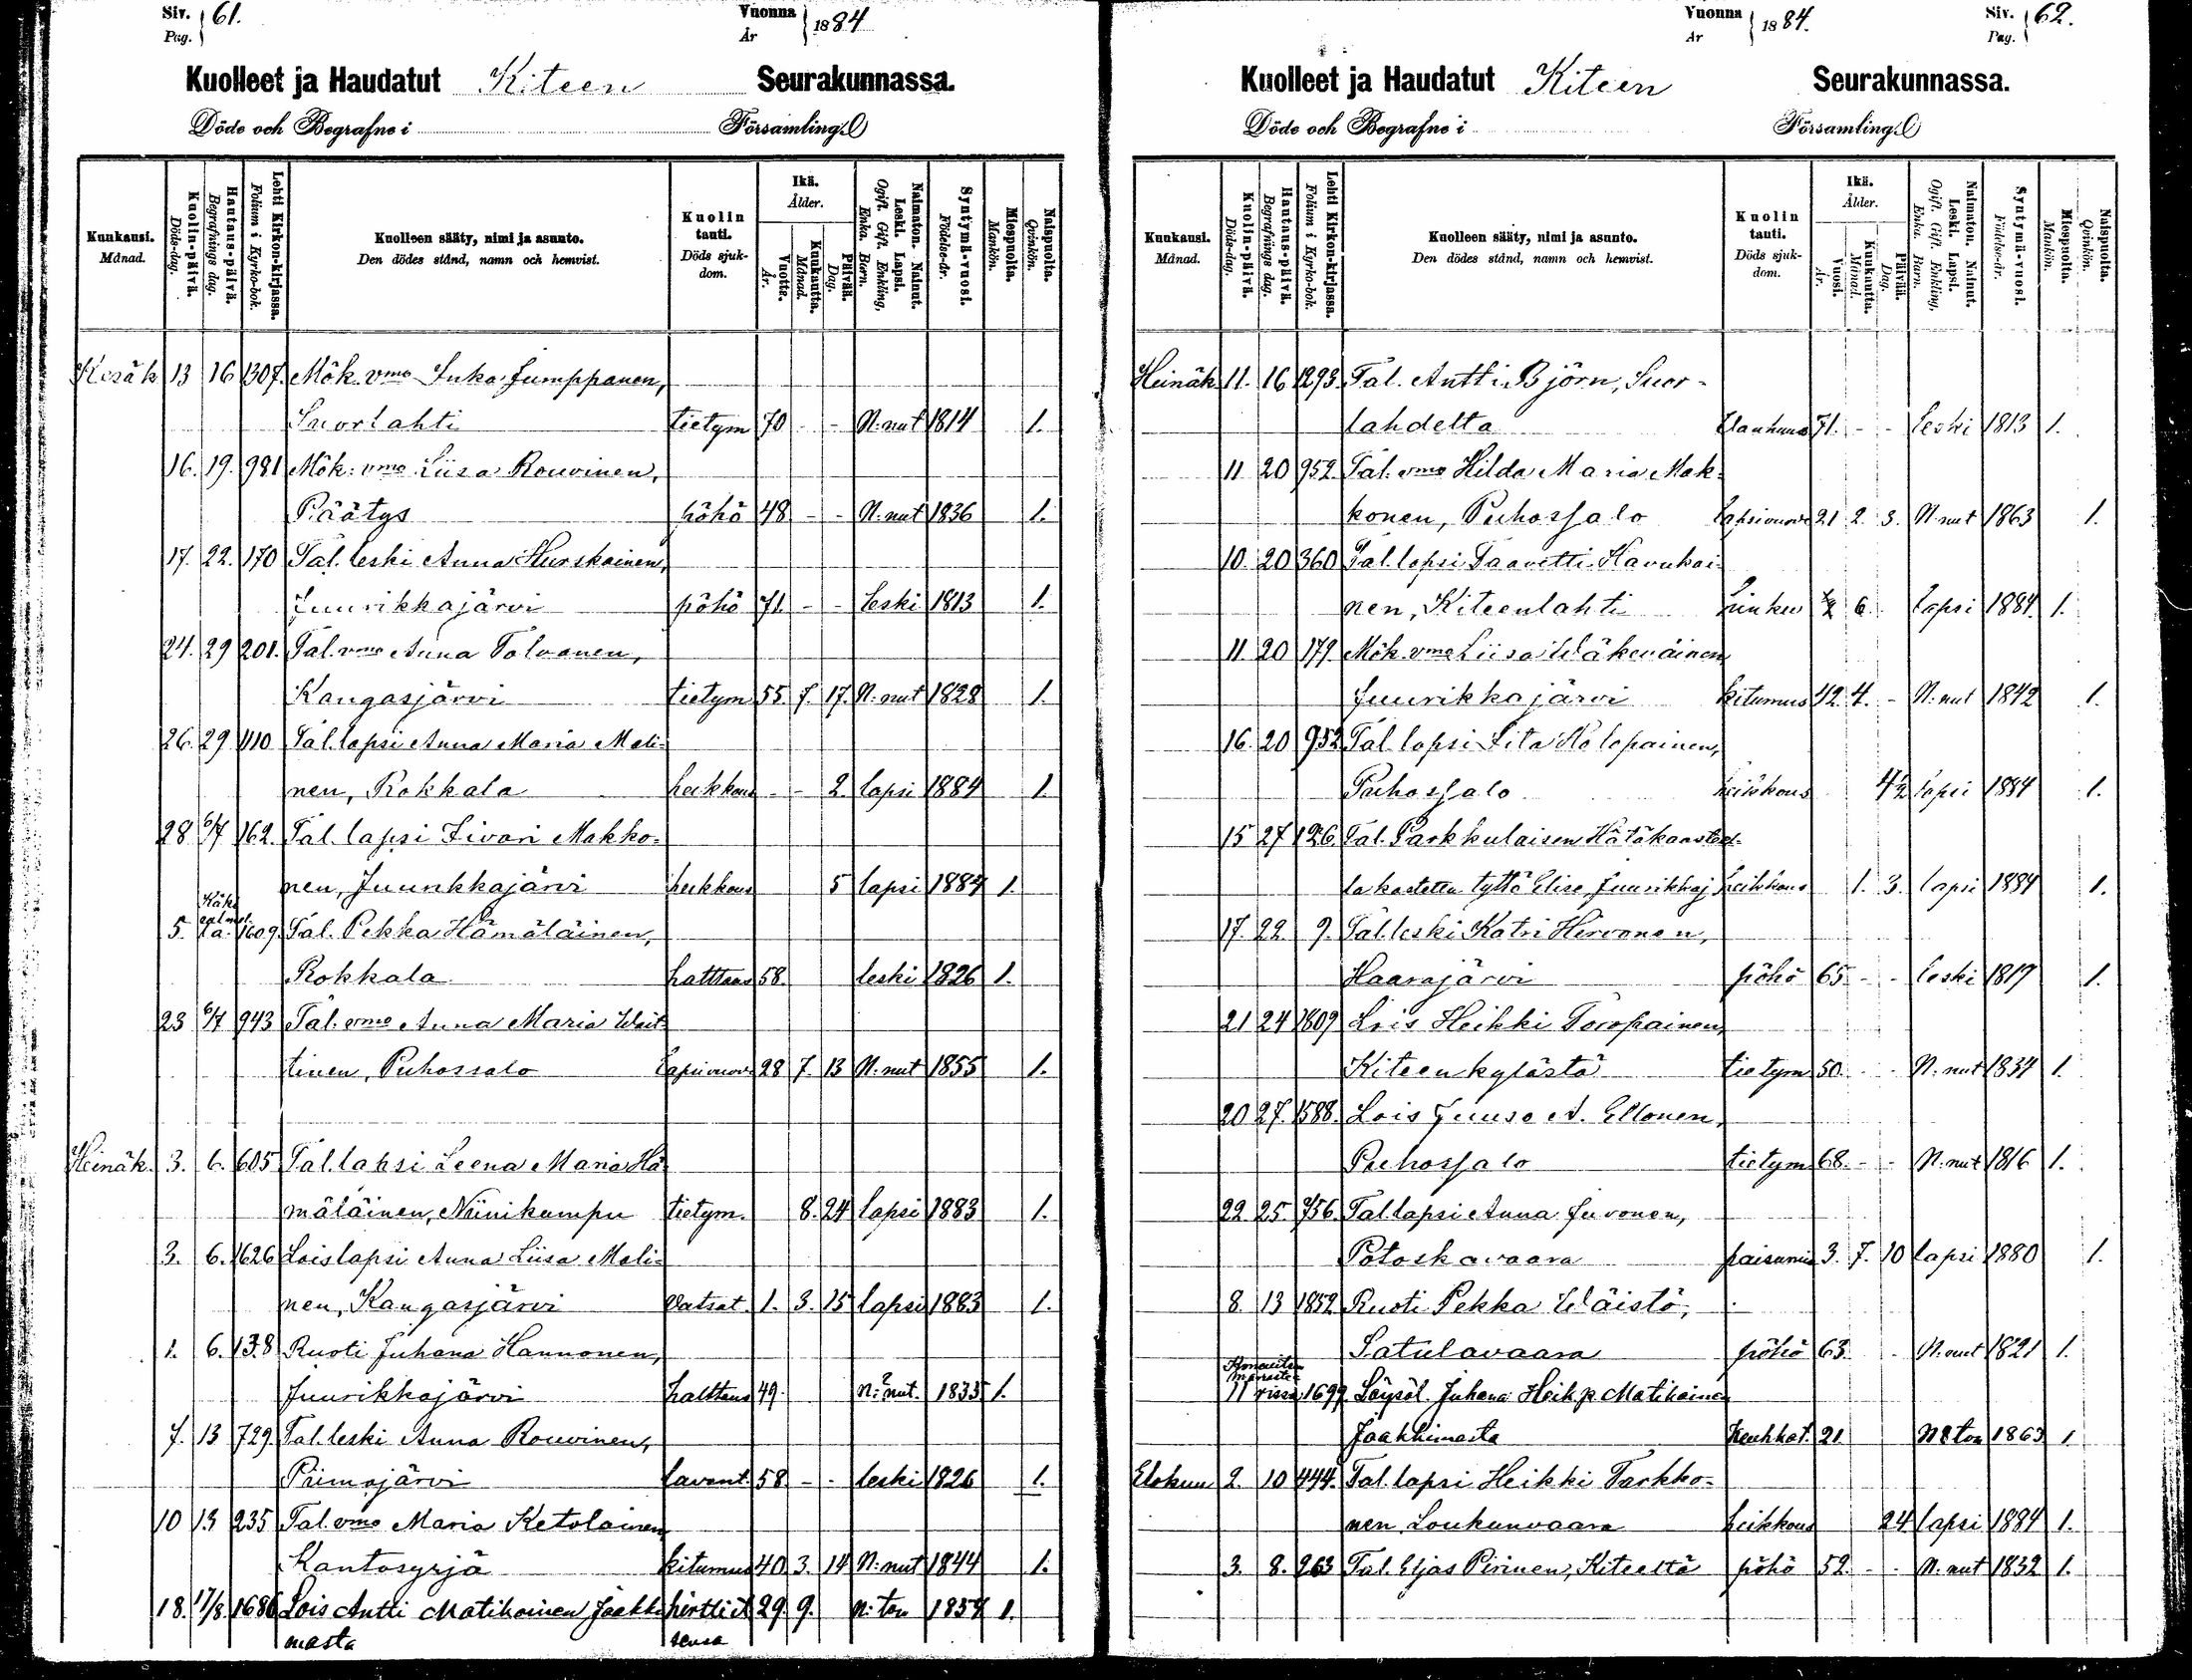 Siv. 61.
Pag.
Vuonna 1884
År
Kuolleet ja Haudatut Kiteen Seurakunnassa.
Döde och Begrafne i Församling.
Kuukausi. Månad.
Kuolin-päivä. Döds-dag.
Hautaus-päivä. Begrafnings dag.
Lehti Kirkon-kirjassa. Folium i Kyrko-bok.
Kuolleen sääty, nimi ja asunto. Den dödes stånd, namn och hemvist.
Kuolin tauti. Döds sjukdom.
Ikä. Ålder.
Vuotta. År.
Kuukautta. Månad.
Päivää. Dag.
Naimaton. Nainut. Leski. Lapsi. Ogift. Gift. Enkling, Enka. Barn.
Syntymä-vuosi. Födelse-år.
Miespuolta. Mankön.
Naispuolta. Qvinkön.
Kesäk 13 16 1307. Mök. vmo Inka Jumppanen,
Suorlahti tietym 70 - - N:nut 1814 1.
16. 19. 981 Mök: vmo Liisa Rouvinen,
Päätys pöhö 48 - - N:nut 1836 1.
17. 22. 170 Tal. leski Anna Hurskainen,
Juurikkajärvi pöhö 71. - - leski 1813 1.
24. 29 201. Tal. vmo Anna Tolvanen,
Kangasjärvi tietym 55. 7. 17. N:nut 1828 1.
26. 29 1110 Tal. lapsi Anna Maria Mali-
nen, Rokkala heikkous - - 2. lapsi 1884 1.
28 6/7 162. Tal. lapsi Iivari Makko-
nen, Juurikkajärvi heikkous 5 lapsi 1884 1.
5. 1609. Tal. Pekka Hämäläinen,
Rokkala halttaus 58. leski 1826 1.
23 6/7 943 Tal. vmo Anna Maria Wait-
tinen, Puhossalo Lapsivuov. 28 7. 13 N:nut 1855 1.
Heinäk. 3. 6. 605 Tal. lapsi Leena Maria Hä-
mäläinen, Niinikumpu tietym. 8. 24 lapsi 1883 1.
3. 6. 1626 Lois lapsi Anna Liisa Mali-
nen, Kangasjärvi Vatsat. 1. 3. 15 lapsi 1883 1.
1. 6. 138 Ruoti Juhana Hannonen,
Juurikkajärvi halttaus 49. n:nut. 1835 1.
7. 13 729. Tal. leski Anna Rouvinen,
Piimäjärvi lavant. 58. - - leski 1826 1.
10 13 235 Tal. vmo Maria Ketolainen
Kantosyrjä kitumus 40 3. 14 N:nut 1844 1.
18. 17/8. 1686 Lois Antti Matikainen Jaakki- 29. 9. n:ton 1854 1.
masta
Vuonna 1884.
År
Siv. 62.
Pag.
Kuolleet ja Haudatut Kiteen Seurakunnassa.
Döde och Begrafne i Församling.
Kuukausi. Månad.
Kuolin-päivä. Döds-dag.
Hautaus-päivä. Begrafnings dag.
Lehti Kirkon-kirjassa. Folium i Kyrko-bok.
Kuolleen sääty, nimi ja asunto. Den dödes stånd, namn och hemvist.
Kuolin tauti. Döds sjukdom.
Ikä. Ålder.
Vuosi. År.
Kuukautta. Månad.
Päivää. Dag.
Naimaton. Nainut. Leski. Lapsi. Ogift. Gift. Enkling, Enka. Barn.
Syntymä-vuosi. Födelse-år.
Miespuolta. Mankön.
Naispuolta. Qvinkön.
Heinäk. 11. 16 1293. Tal. Antti Björn, Suor-
lahdelta Vanhuus 71. - - leski 1813 1.
11 20 952. Tal. vmo Hilda Maria Mak-
konen, Puhossalo Lapsivuov. 21 2. 3. N:nut 1863 1.
10. 20 360 Tal. lapsi Taavetti Havukai-
nen, Kiteenlahti hinku 6. lapsi 1884. 1.
11. 20 179. Mök. vmo Liisa Wäkeväinen
Juurikkajärvi kitumus 42. 4. - N:nut 1842 1.
16. 20 952 Tal. lapsi Iita Holopainen,
Puhossalo heikkous lapsi 1884 1.
15 27 126. Tal. Parkkulaisen Hätäkasteel-
la kastettu tyttö Elise, Juurikkaj. heikkous 1. 3. lapsi 1884 1.
17. 22. 9. Tal. leski Katri Hirvonen,
Haarajärvi pöhö 65 - - leski 1819 1.
21 24 1609 Lois Heikki Toropainen,
Kiteenkylästä tietym 50. - - N:nut 1834 1.
20 27. 1588. Lois Juuso A. Ellonen,
Puhossalo tietym 68. - - N:nut 1816 1.
22. 25. 756. Tal. lapsi Anna Juvonen,
Potoskavaara paisumia 3. 7. 10 lapsi 1880 1.
8. 13 1852. Ruoti Pekka Wäistö,
Satulavaara pöhö 63. - N:nut 1821 1.
11 1699. Löysöl. Juhana Heik.p. Matikainen
Jaakkimasta Keuhkot. 21. N:ton 1863 1.
Elokuu 2. 10 444. Tal. lapsi Heikki Tarkko-
nen, Loukunvaara heikkous 24 lapsi 1884 1.
3. 8. 263 Tal. Eljas Pirinen, Kiteeltä pöhö 52. - - N:nut 1832 1.